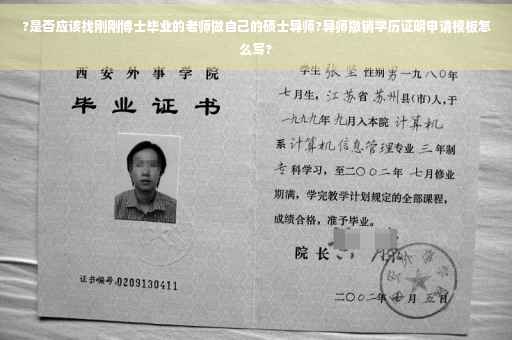 ?是否应该找刚刚博士毕业的老师做自己的硕士导师?导师撤销学历证明申请模板怎
么写?
西安外事学院
毕业证书
证书编号:0209130411
学生 张坚 性别 男 一九八〇年
七月生,江苏省 苏州 县(市)人,于
一九九九年 九月入本院 计算机
系 计算机信息管理 专业 三 年制
专 科学习,至二〇〇二年 七月修业
期满,学完教学计划规定的全部课程,
成绩合格,准予毕业。
院长
二〇〇二年 月 五日